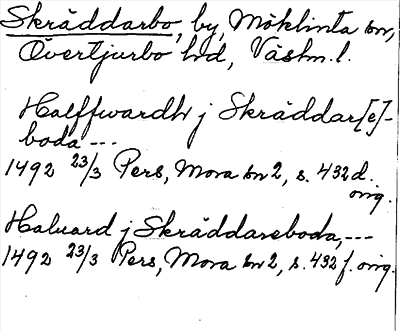 Skräddarbo, by, Möklinta sn,
Övertjurbo hd, Västm.l.
Halffwardh j Skräddar[e]-
boda ---
1492 23/3 Pers, Mora sn 2, s. 432 d.
orig.
Haluard j Skräddareboda, ---
1492 23/3 Pers, Mora sn 2, s. 432 f. orig.